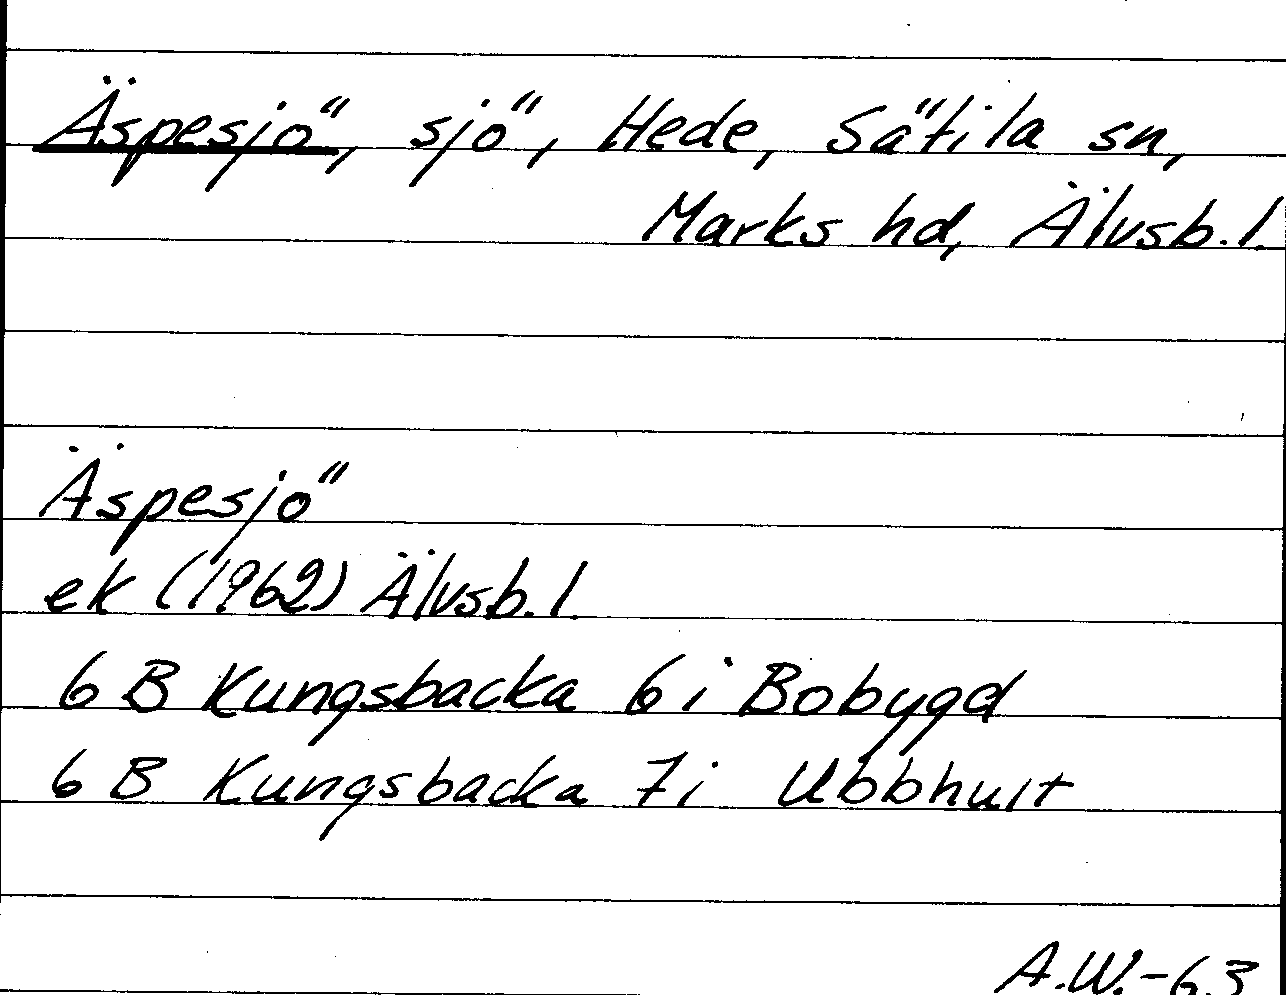 Äspesjö, sjö, Hede, Sätila sn,
Marks hd, Älvsb. l.
Äspesjö
ek (1962) Älvsb. l.
6 B Kungsbacka 6 i Bobygd
6 B Kungsbacka 7 i Ubbhult
A.W.-63